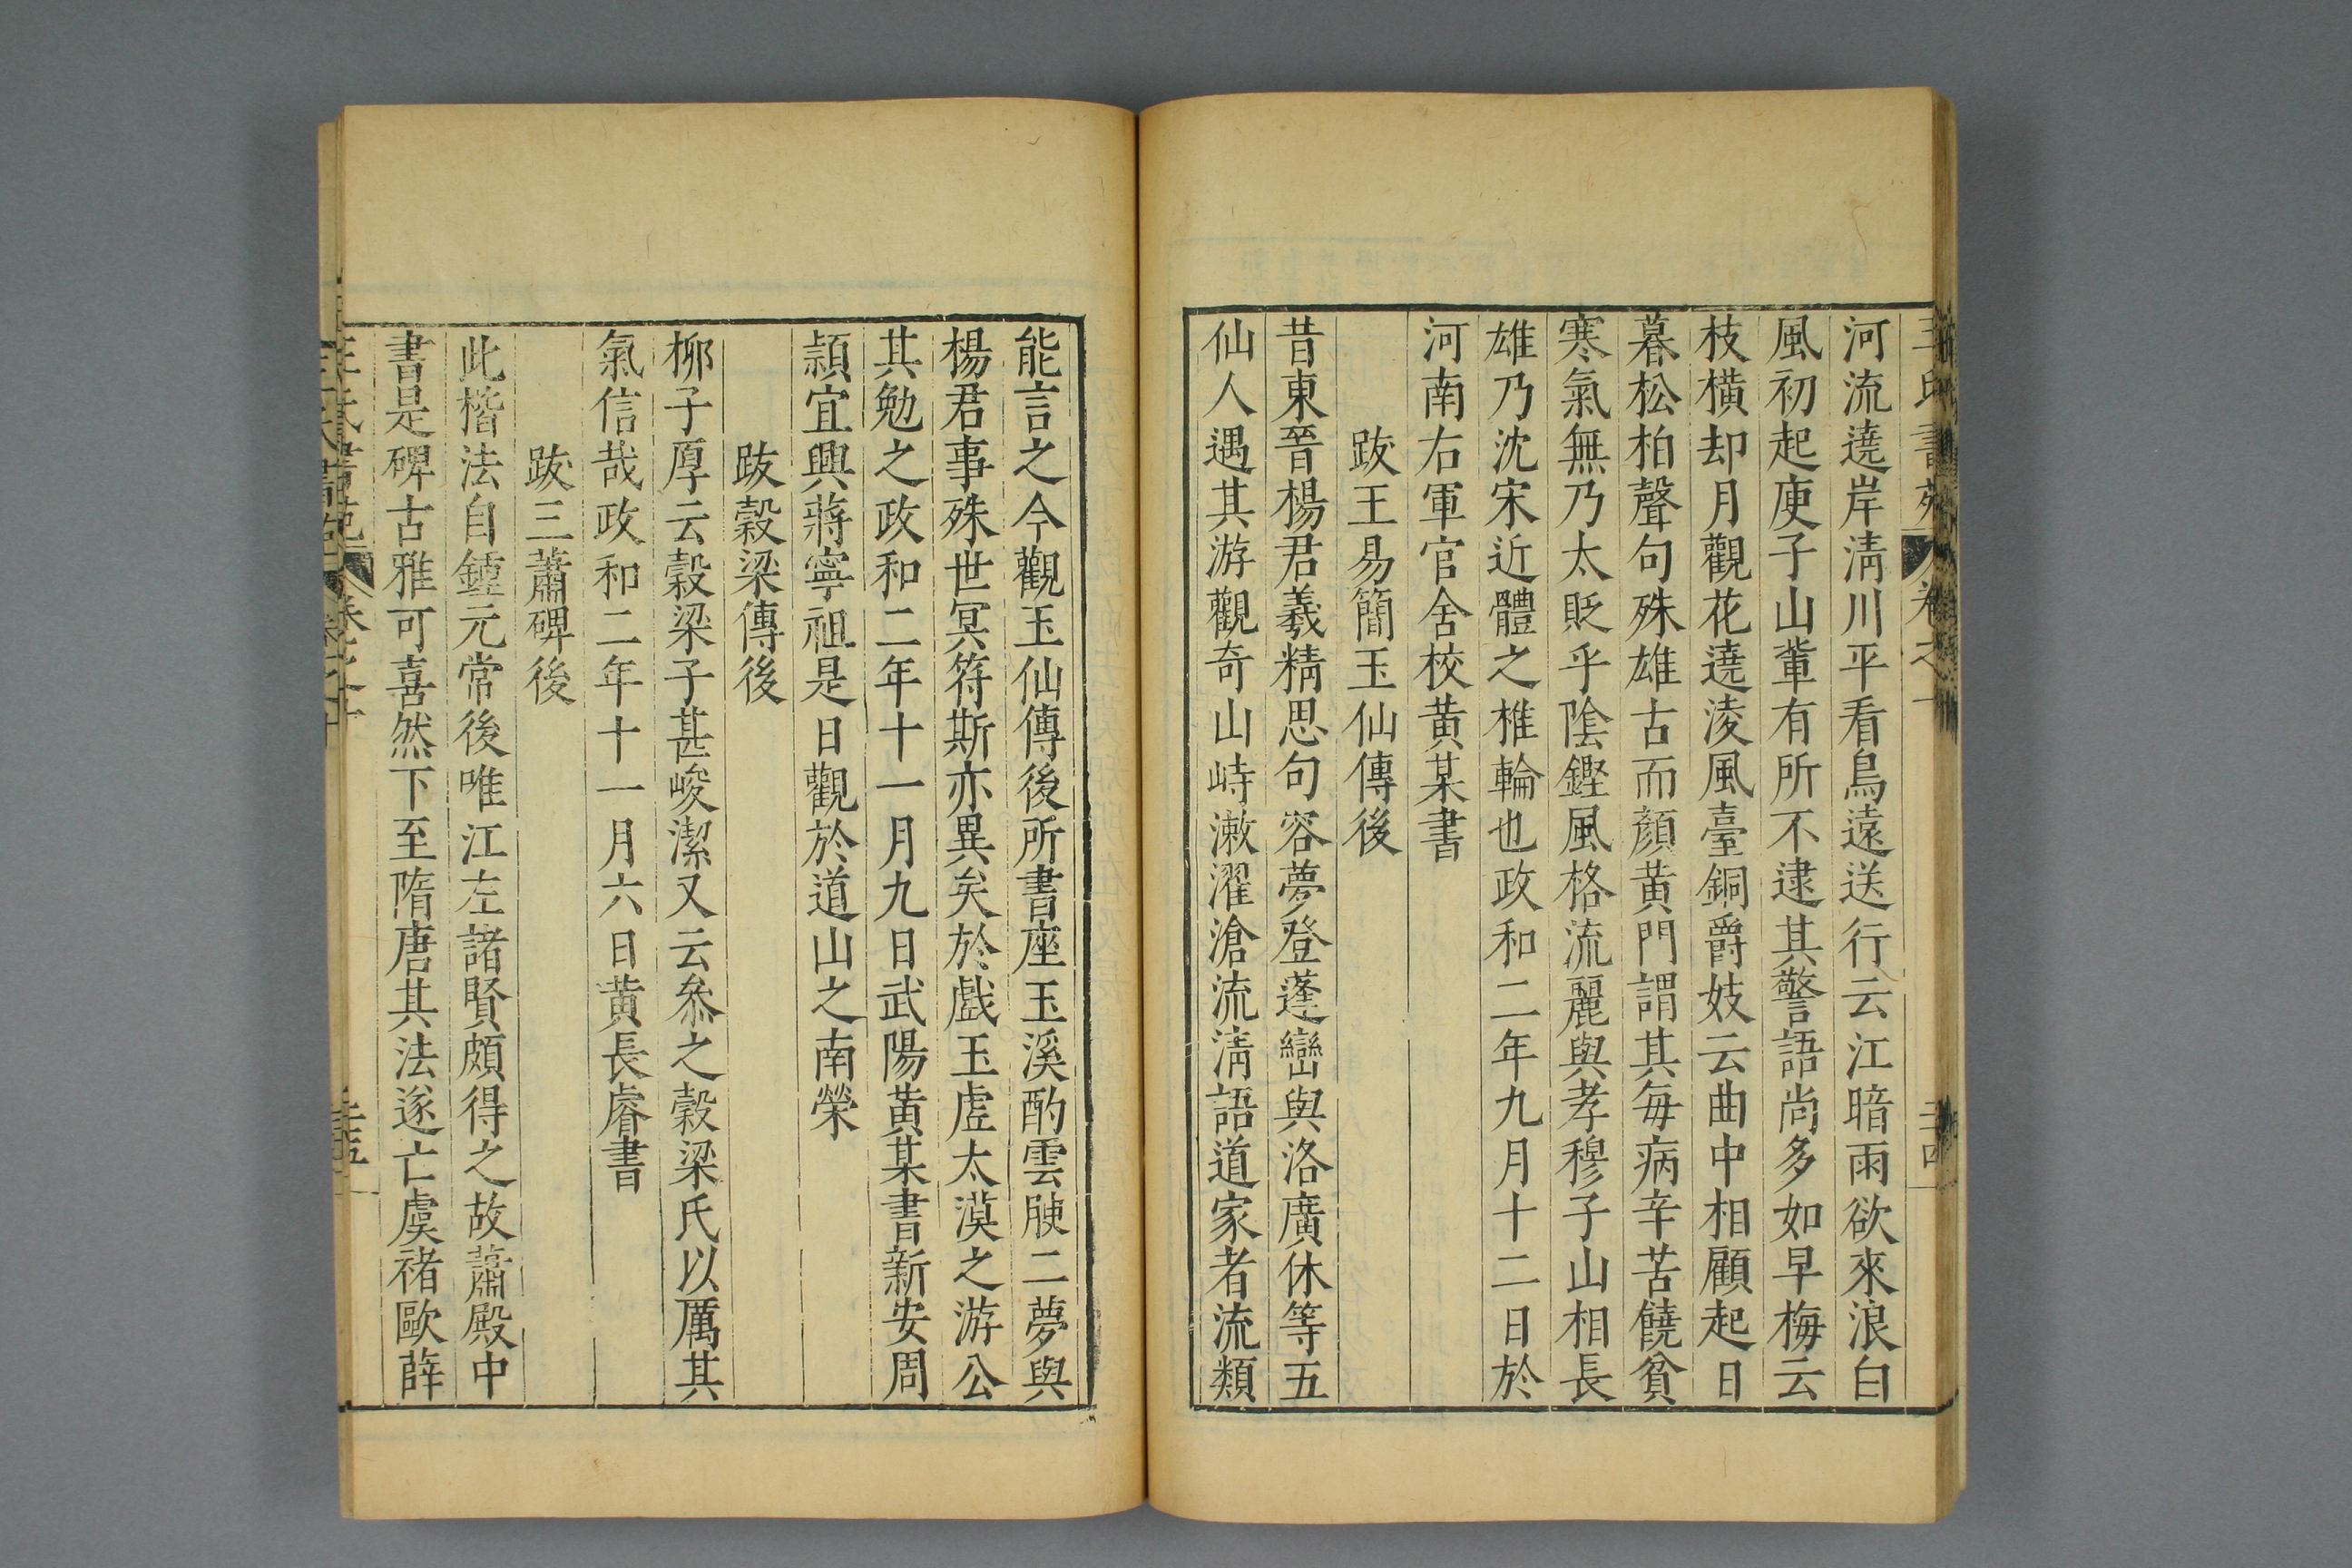 河流遶岸清川平看鳥遠送行云江暗雨欲來浪白
風初起庾子山輩有所不逮其警語尚多如早梅云
枝橫却月觀花遶淩風臺銅爵妓云曲中相顧起日
暮松柏聲句殊雄古而顏黃門謂其每病辛苦饒貧
寒氣無乃太貶乎陰鏗風格流麗與孝穆子山相長
雄乃沈宋近體之椎輪也政和二年九月十二日於
河南右軍官舍校黃某書
跋王易簡玉仙傳後
昔東晉楊君羲精思句容夢登蓬巒與洛廣休等五
仙人遇其游觀奇山峙漱濯滄流清語道家者流類
能言之今觀玉仙傳後所書座玉溪酌雲腴二夢與
楊君事殊世冥符斯亦異矣於戲玉虛太漠之游公
其勉之政和二年十一月九日武陽黃某書新安周
頴宜興蔣寧祖是日觀於道山之南榮
跋穀梁傳後
柳子厚云穀梁子甚峻潔又云叅之穀梁氏以厲其
氣信哉政和二年十一月六日黃長睿書
跋三蕭碑後
此楷法自鍾元常後唯江左諸賢頗得之故蕭殿中
書是碑古雅可喜然下至隋唐其法遂亡虞褚歐薛